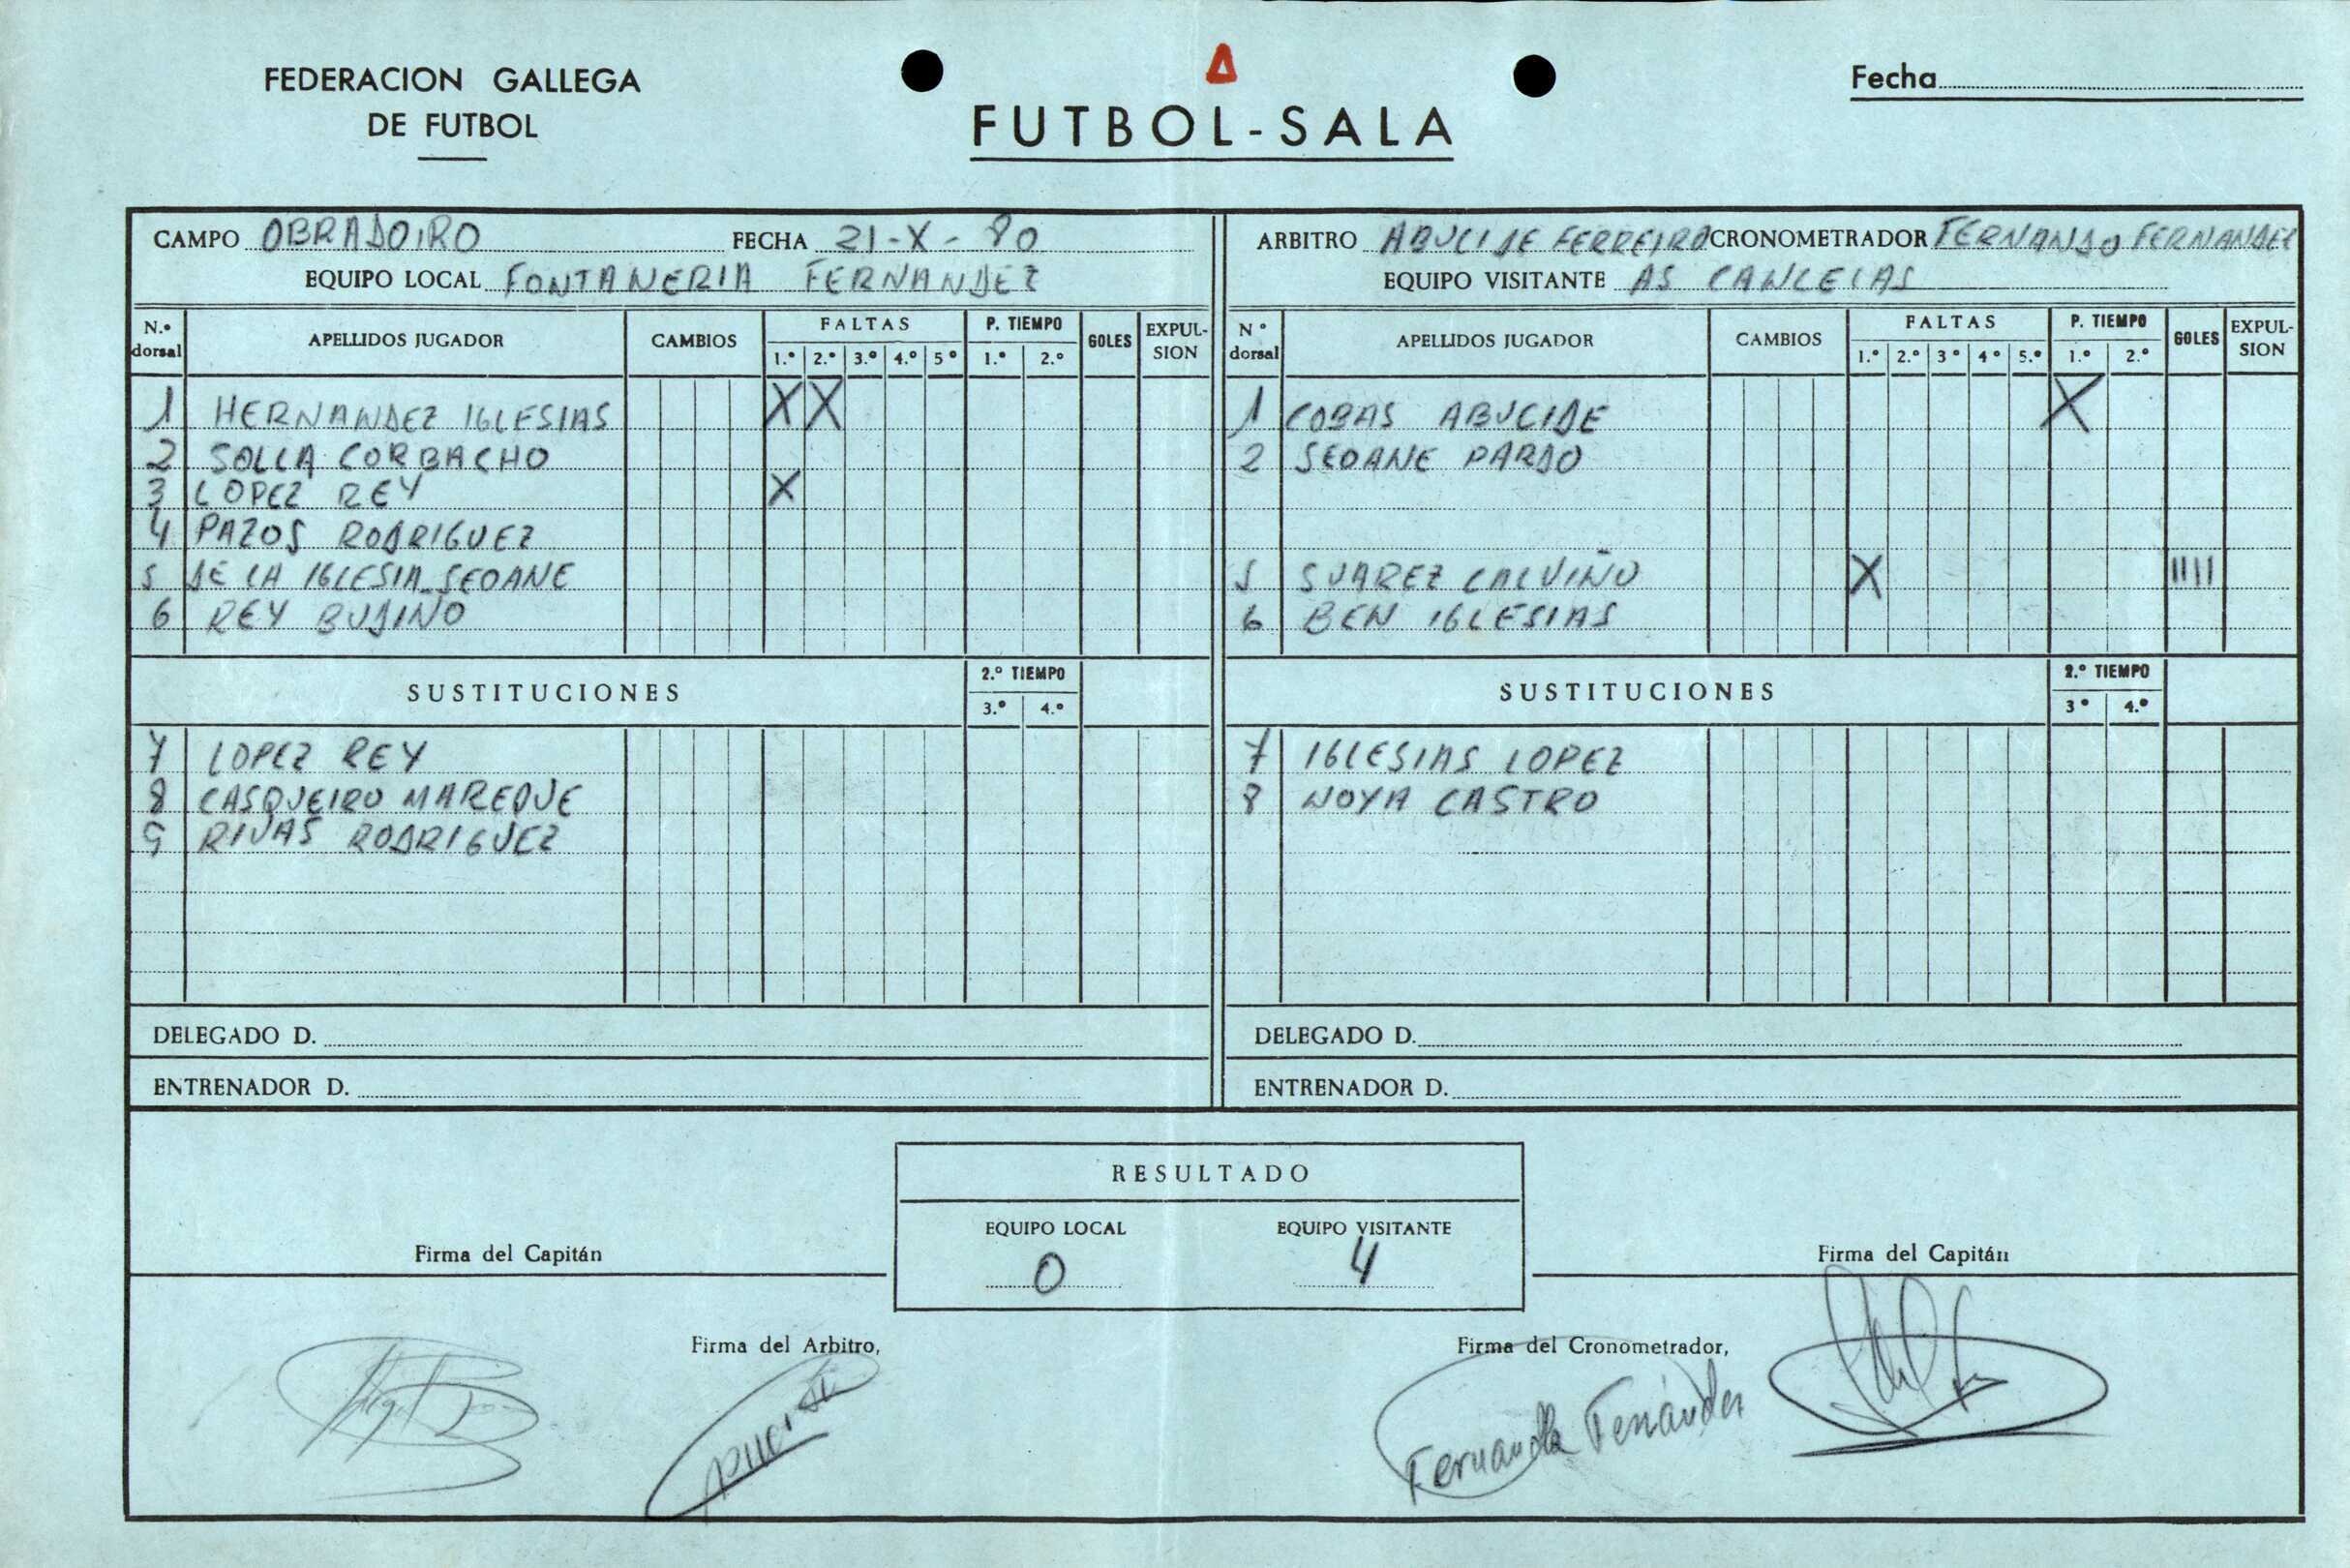 FEDERACION GALLEGA
DE FUTBOL
FUTBOL-SALA
Fecha
CAMPO OBRADOIRO FECHA 21-X-80
EQUIPO LOCAL FONTANERIA FERNANDEZ
ARBITRO ABUCIDE FERREIRO CRONOMETRADOR FERNANDO FERNANDEZ
EQUIPO VISITANTE AS CANCELAS
N.º dorsal APELLIDOS JUGADOR CAMBIOS FALTAS 1.º 2.º 3.º 4.º 5º P. TIEMPO 1.º 2.º GOLES EXPULSION
1 HERNANDEZ IGLESIAS X X
2 SOLLA CORBACHO
3 LOPEZ REY X
4 PAZOS RODRIGUEZ
5 DE LA IGLESIA SEOANE
6 REY BUDIÑO
SUSTITUCIONES 2.º TIEMPO 3.º 4.º
7 LOPEZ REY
8 CASQUEIRO MAREQUE
9 RIVAS RODRIGUEZ
DELEGADO D.
ENTRENADOR D.
Nº dorsal APELLIDOS JUGADOR CAMBIOS FALTAS 1.º 2.º 3º 4º 5.º P. TIEMPO 1.º 2.º GOLES EXPULSION
1 COBAS ABUCIDE X
2 SEOANE PARDO
5 SUAREZ CALVIÑO X IIII
6 BEN IGLESIAS
SUSTITUCIONES 2.º TIEMPO 3º 4.º
7 IGLESIAS LOPEZ
8 NOYA CASTRO
DELEGADO D.
ENTRENADOR D.
RESULTADO
EQUIPO LOCAL EQUIPO VISITANTE
0 4
Firma del Capitán
Firma del Capitán
Firma del Arbitro,
Firma del Cronometrador,
Fernando Fernández